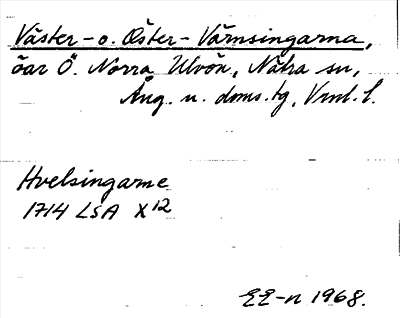 Väster- o. Öster- Värnsingarna,
öar Ö. Norra Ulvön, Nätra sn,
Ång. n. doms.tg, Vrnl. l.
Hvelsingarne
1714 LSA X 12
EE-n 1968.